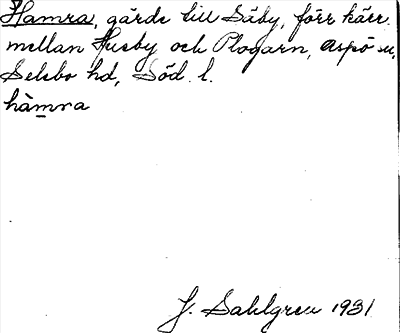 Hamra, gärde till Säby, förr kärr
mellan Husby och Plogarn, Aspö sn,
Selebo hd, Söd. l.
hàmra
J. Sahlgren 1931